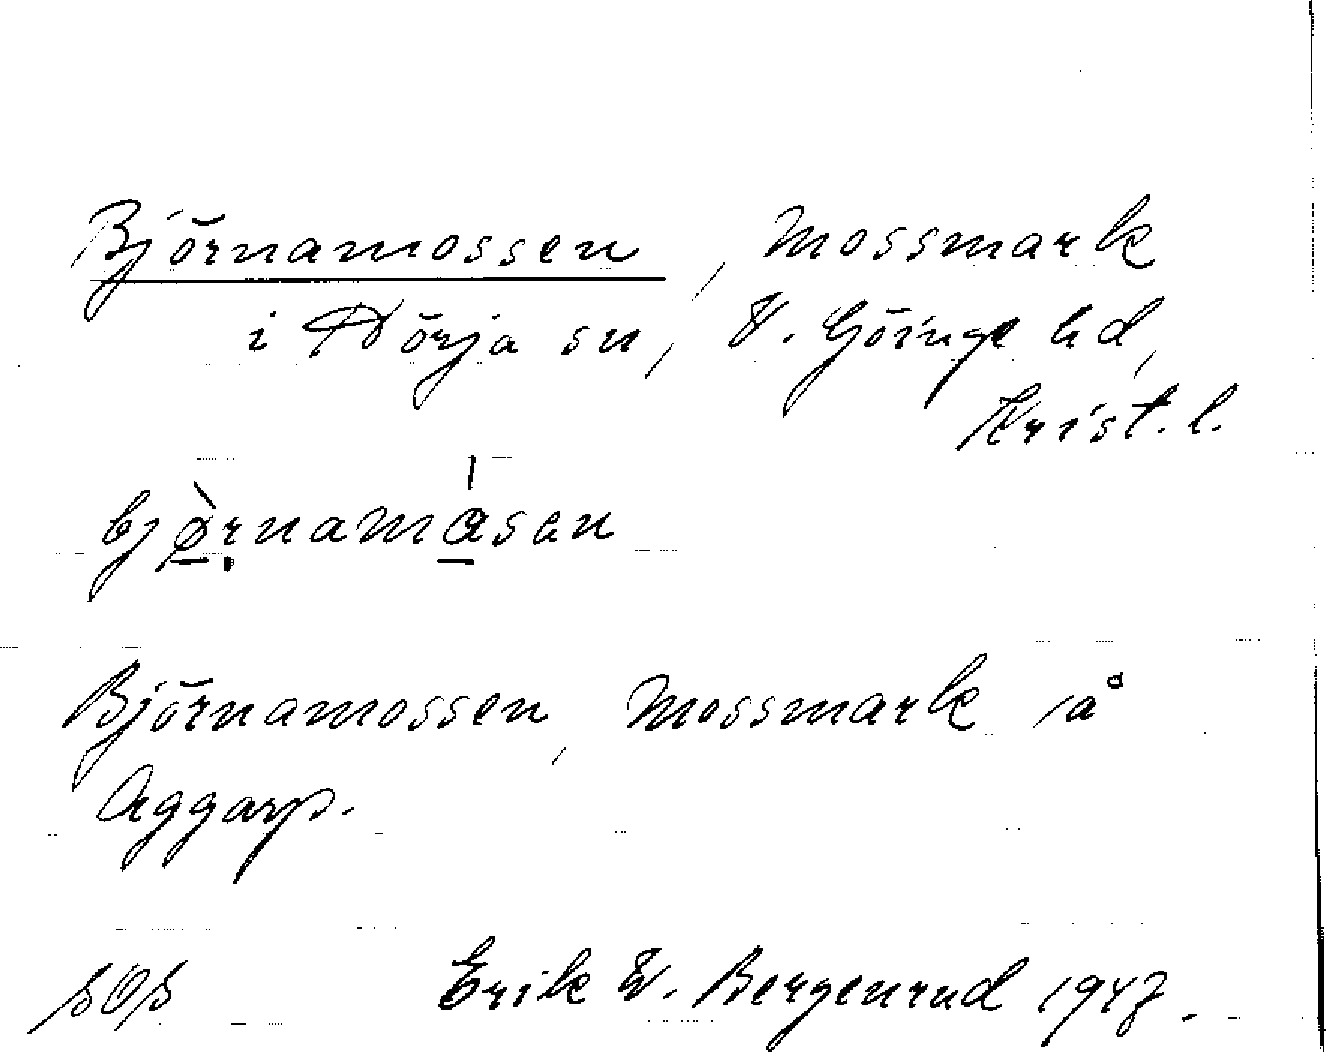 Björnamossen, Mossmark
i Nörja sn, V. Göinge hd,
Krist. l.
bjørnamåsen
Björnamossen, Mossmark på
Aggarp.
Erik W. Bergenrud 1947.